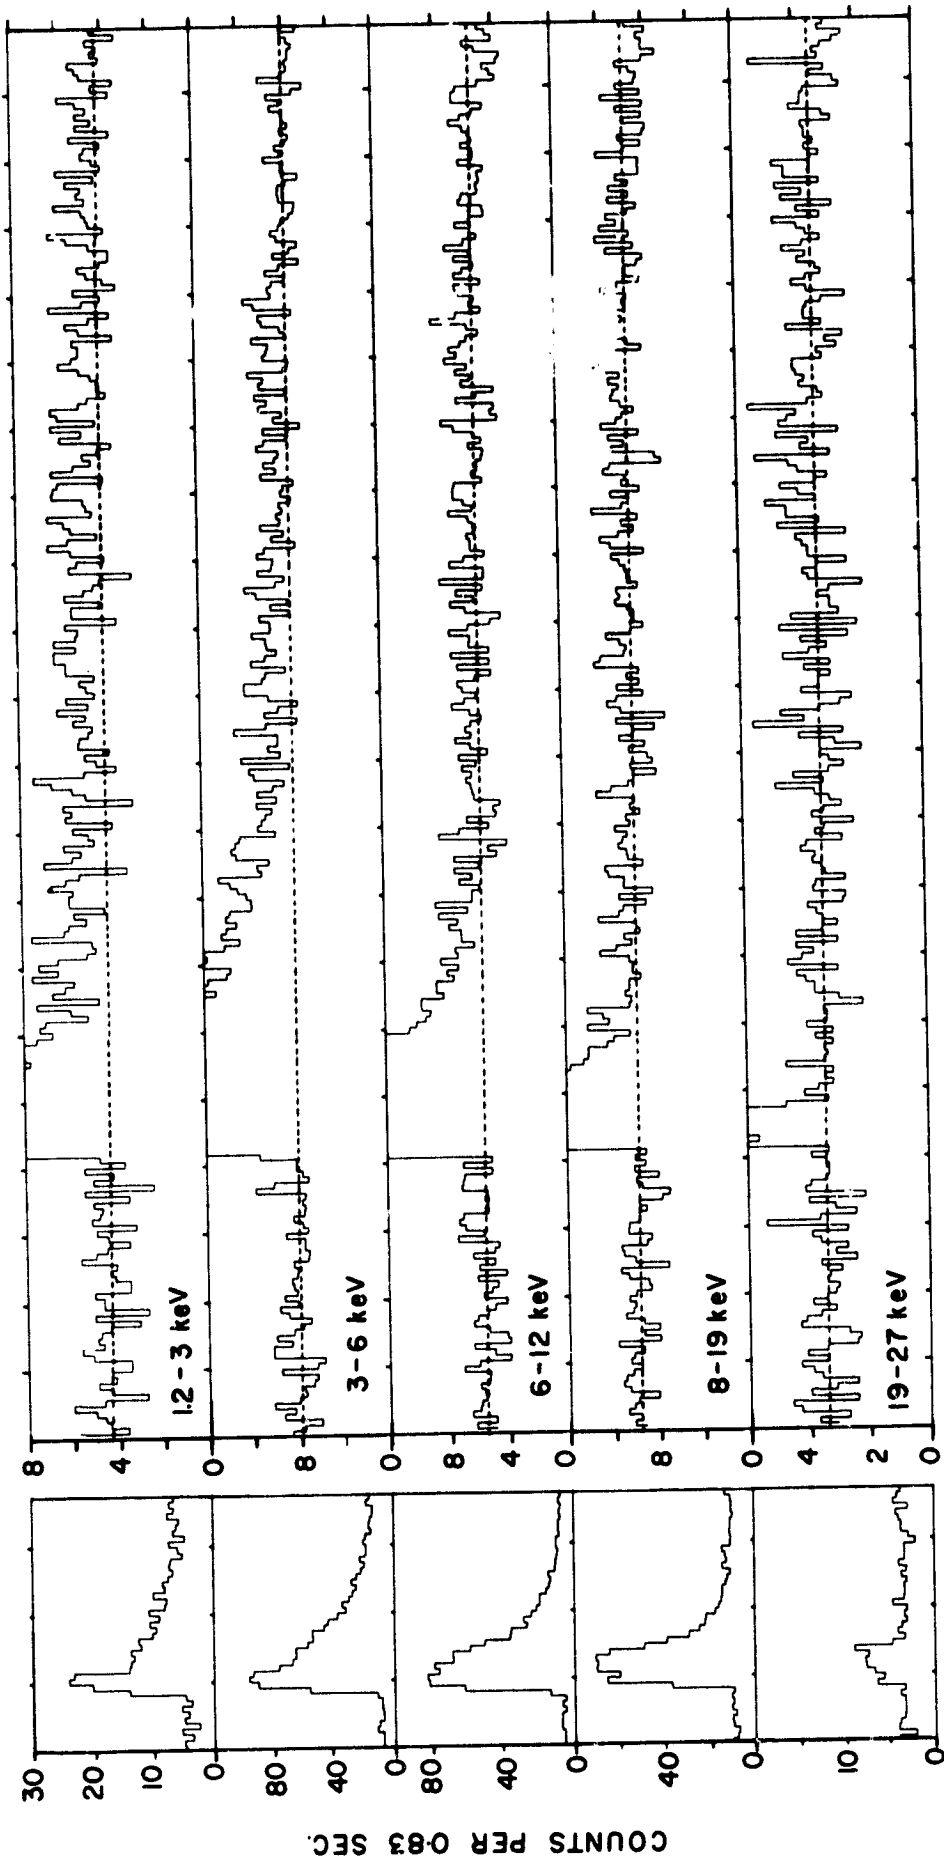 COUNTS PER 0.83 SEC.
30
20
10
0
80
0
80
0
40
0
10
0
8
4
0
8
0
8
4
0
8
0
4
2
0
1.2–3 keV
3–6 keV
6–12 keV
8–19 keV
19–27 keV